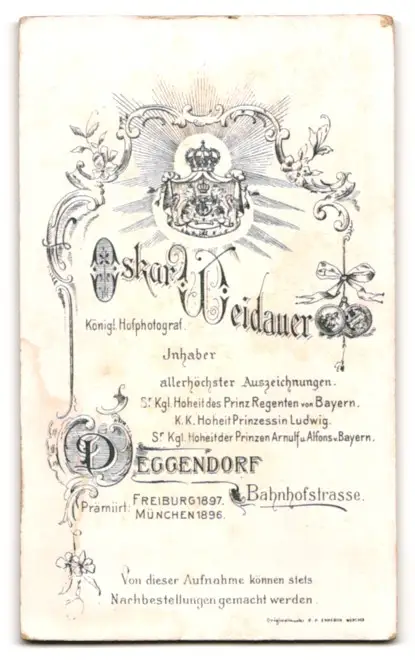 Oskar Weidauer
Königl. Hofphotograf.
Inhaber
allerhöchster Auszeichnungen.
Sr. Kgl. Hoheit des Prinz Regenten von Bayern.
K.K. Hoheit Prinzessin Ludwig.
Sr. Kgl. Hoheit der Prinzen Arnulf u. Alfons v. Bayern.
DEGGENDORF
Bahnhofstrasse.
Prämiirt: FREIBURG 1897.
MÜNCHEN 1896.
Von dieser Aufnahme können stets
Nachbestellungen gemacht werden.